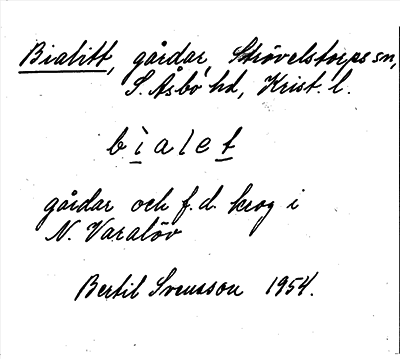 Bialitt, gårdar, Strövelstorps sn,
S. Åsbo hd, Krist. l.
bìalet
gårdar och f.d. krog i
N. Varalöv
Bertil Svensson 1954.